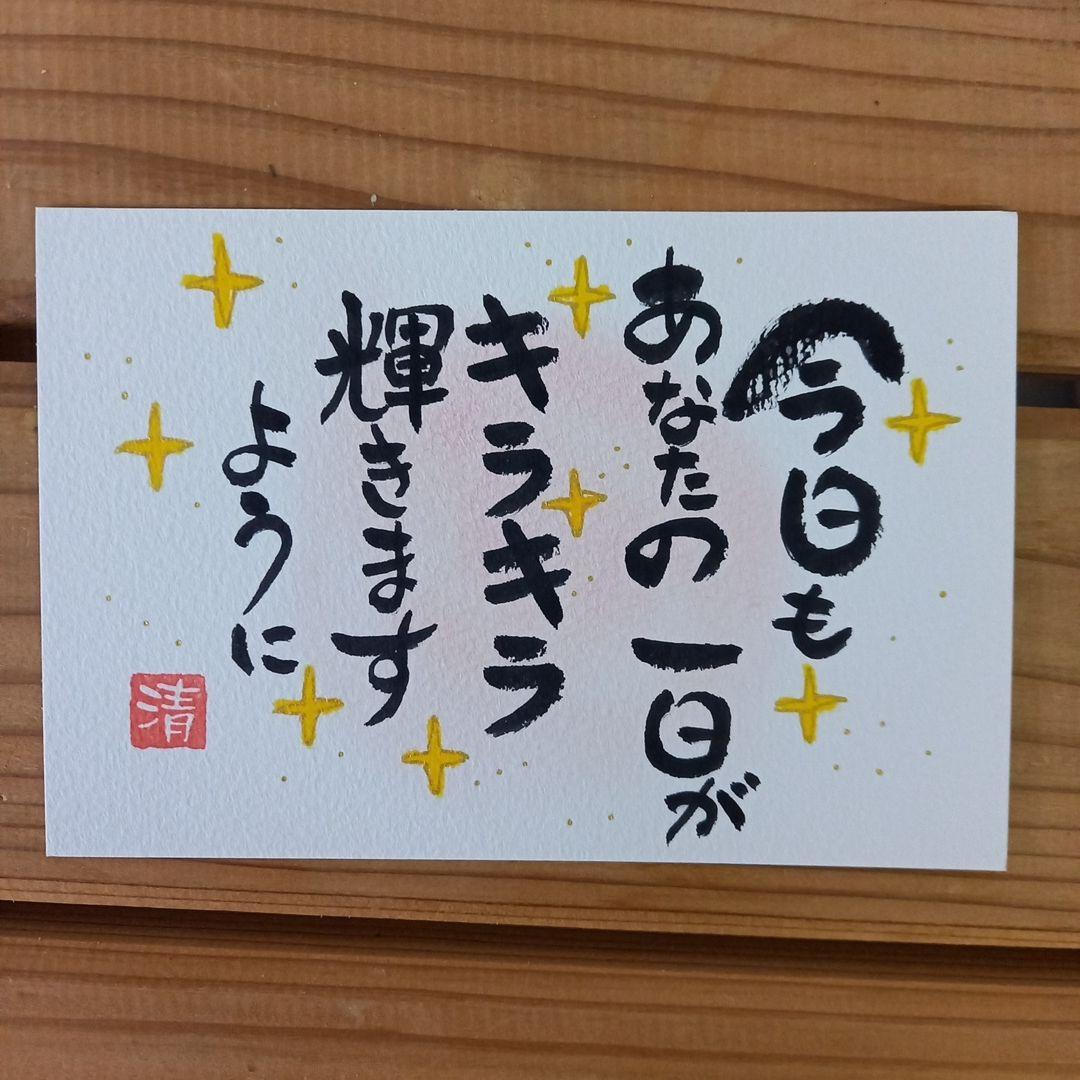 今日も
あなたの一日が
キラキラ
輝きます
ように
清